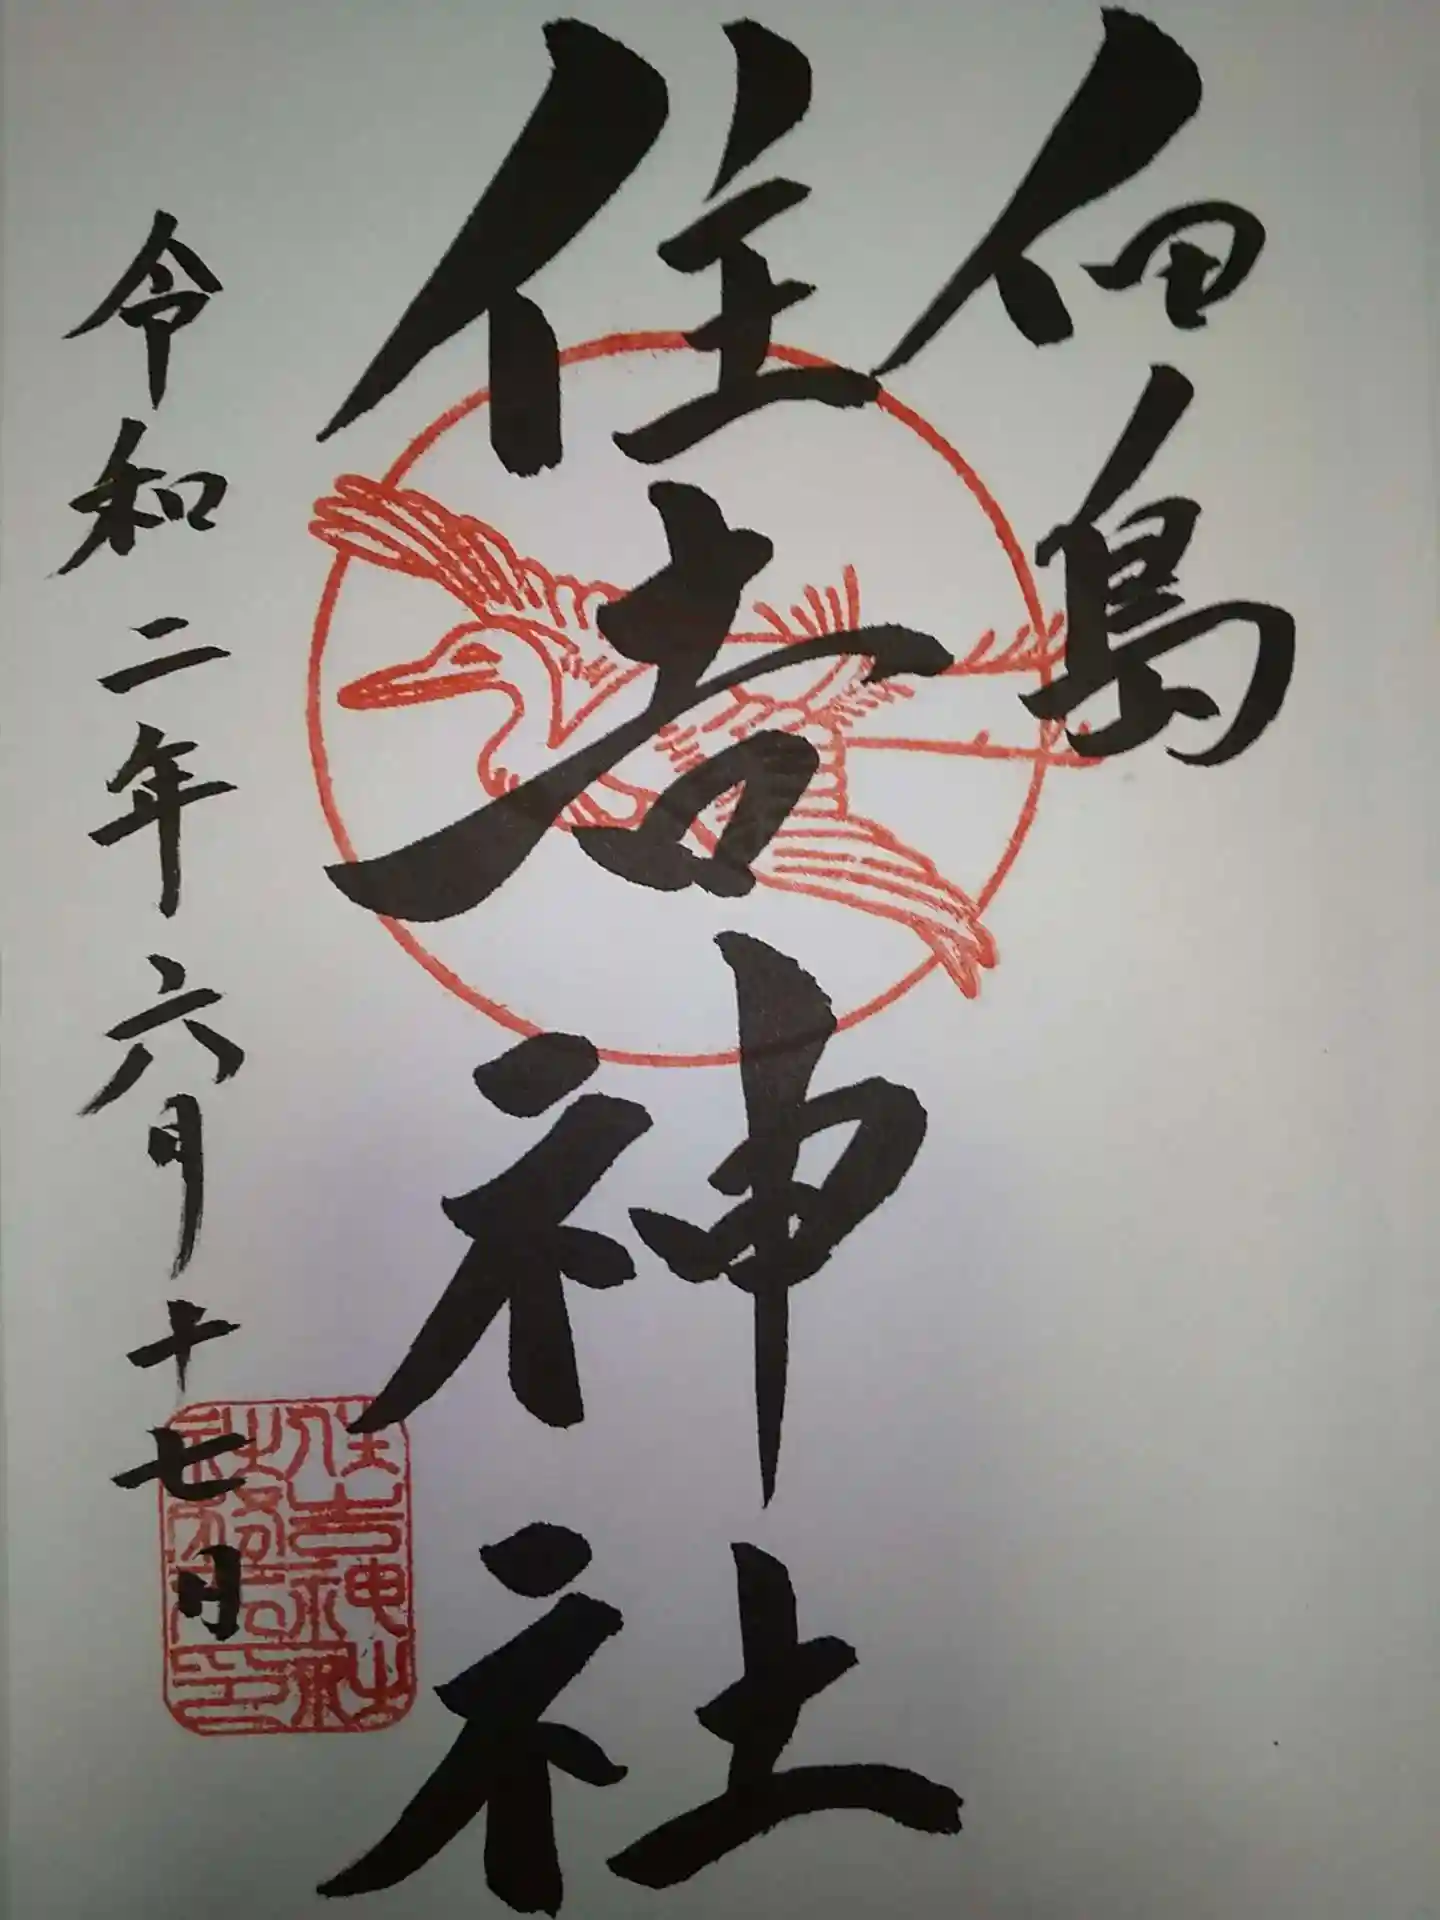 佃島
住吉神社
令和二年六月十七日
住吉神社
社務所印